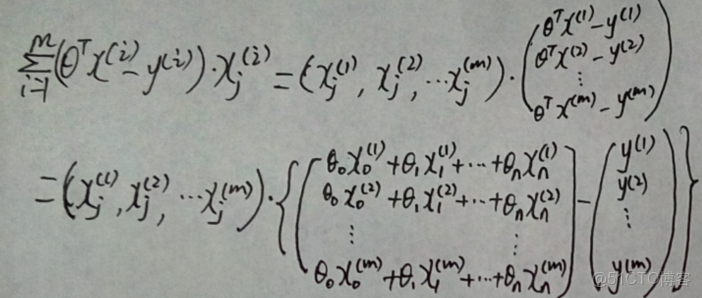 $\sum_{i=1}^{m}(\theta^T x^{(i)} - y^{(i)}) \cdot x_j^{(i)} = (x_j^{(1)}, x_j^{(2)}, \cdots x_j^{(m)}) \cdot \begin{pmatrix} \theta^T x^{(1)} - y^{(1)} \\ \theta^T x^{(2)} - y^{(2)} \\ \vdots \\ \theta^T x^{(m)} - y^{(m)} \end{pmatrix}$
$= (x_j^{(1)}, x_j^{(2)}, \cdots x_j^{(m)}) \cdot \left\{ \begin{pmatrix} \theta_0 x_0^{(1)} + \theta_1 x_1^{(1)} + \cdots + \theta_n x_n^{(1)} \\ \theta_0 x_0^{(2)} + \theta_1 x_1^{(2)} + \cdots + \theta_n x_n^{(2)} \\ \vdots \qquad \vdots \\ \theta_0 x_0^{(m)} + \theta_1 x_1^{(m)} + \cdots + \theta_n x_n^{(m)} \end{pmatrix} - \begin{pmatrix} y^{(1)} \\ y^{(2)} \\ \vdots \\ y^{(m)} \end{pmatrix} \right\}$
@51CTO博客